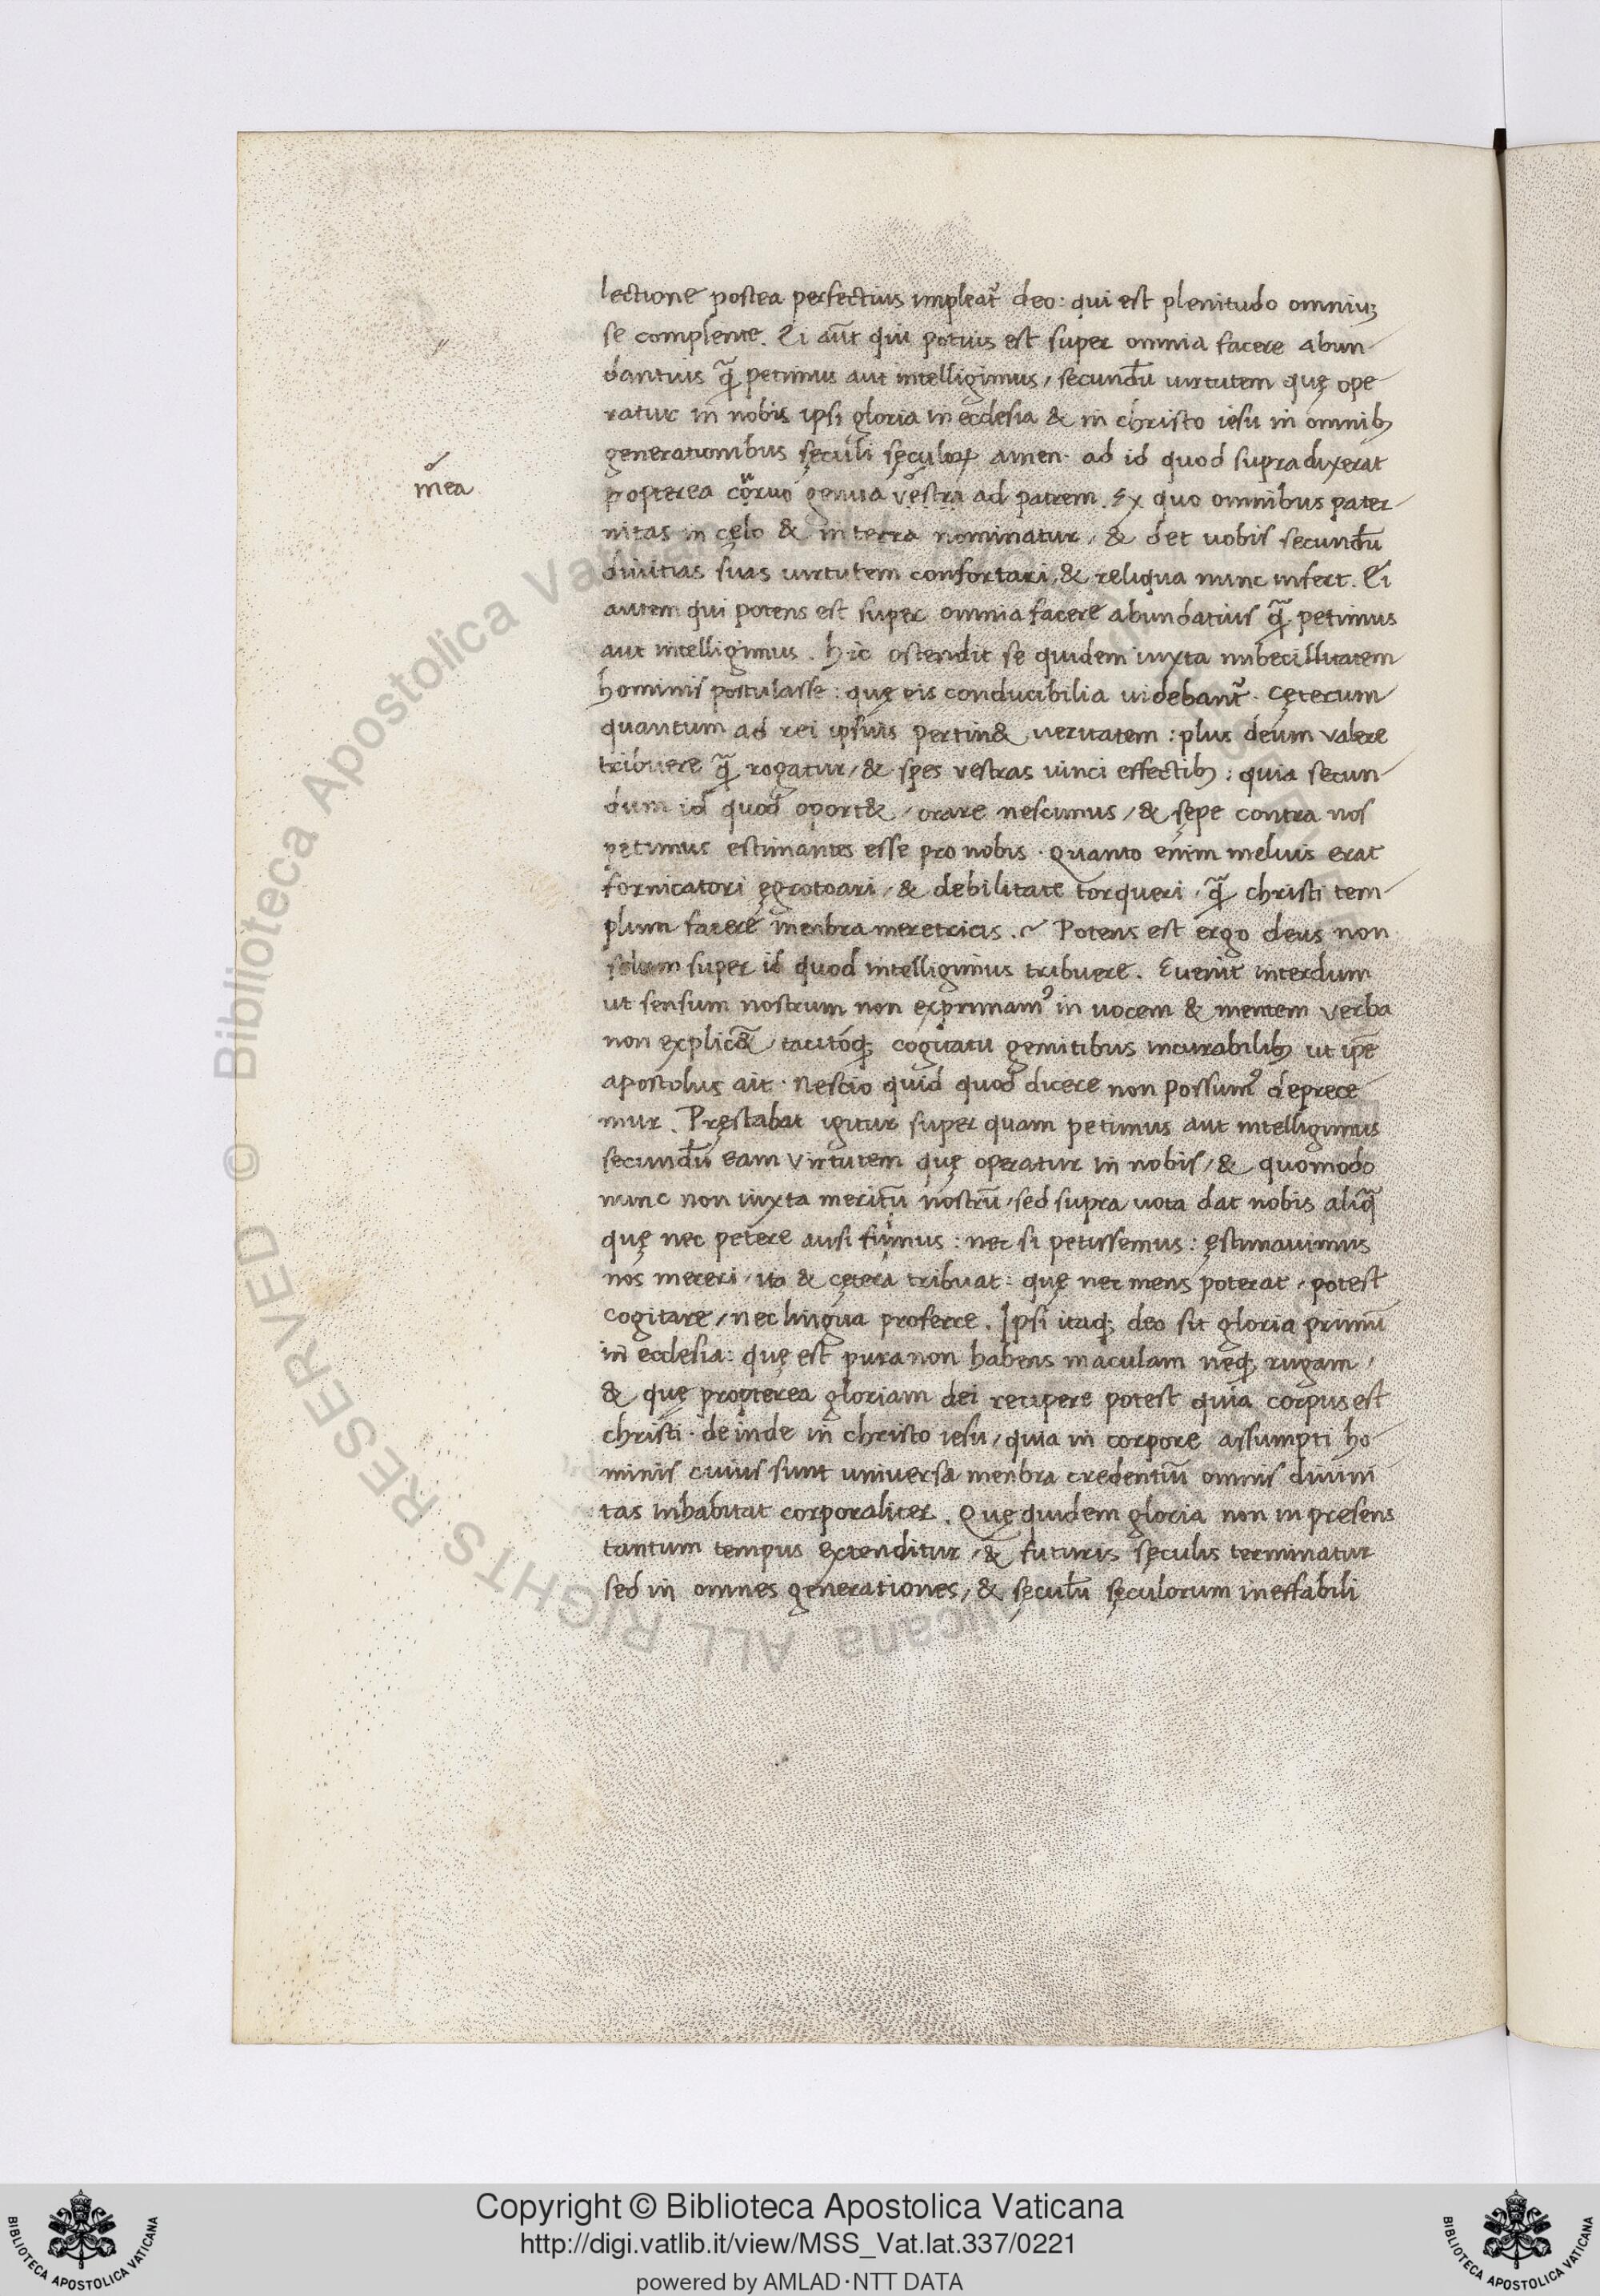 lectione postea perfectius impleat᷑ deo: qui est plenitudo omniuꝫ
se complente. Ei aut̄ qui potuis est super omnia facere abun
dantius q̃ petimus aut intelligimus, secundū uirtutem quę ope
ratur in nobis ipsi gloria in ecclesia & in christo iesu in omnibꝫ
generationibus sęculi sęculoꝝ amen. ad id quod supra dixerat
mea
propterea coruo genua vestra ad patrem. Ex quo omnibus pater
nitas in cęlo & in terra nominatur, & det uobis secundū
diuitias suas uirtutem confortari, & reliqua nunc infert. Ei
autem qui potens est super omnia facere abundatius q̃ petimus
aut intelligimus. hic ostendit se quidem iuxta imbecillitatem
hominis postulasse: quę eis conducibilia uidebant᷑. cęterum
quantum ad rei ipsius pertin& ueritatem: plus deum valere
tribuere q̃ rogatur, & spes vestras uinci effectibꝫ: quia secun
dum id quod oport&, orare nescimus, & sępe contra nos
petimus estimantes esse pro nobis. Quanto enim melius erat
fornicatori ęgrotoari, & debilitate torqueri, q̃ christi tem
plum facere menbra meretricis. Potens est ergo deus non
solum super id quod intelligimus tribuere. Euenit interdum
ut sensum nostrum non exprimamꝰ in uocem & mentem verba
non explic&̄, tacitoqꝫ cogitatu gemitibus incurabilibꝫ ut ip̄e
apostolus ait. Nescio quid quod dicere non possumꝰ deprece
mur. Pręstabat igitur super quam petimus aut intelligimus
secundū eam virtutem quę operatur in nobis, & quomodo
nunc non iuxta meritū nostrū, sed supra uota dat nobis aliq̃
quę nec petere ausi fuimus: nec si petissemus: ęstimauimus
nos mereri, ita & cętera tribuat: quę nec mens poterat, potest
cogitare, nec lingua proferre. Ipsi itaqꝫ deo sit gloria primū
in ecclesia: quę est pura non habens maculam neqꝫ rugam,
& quę propterea gloriam dei recipere potest quia corpus est
christi. deinde in christo iesu, quia in corpore assumpti ho
minis cuius sunt universa menbra credentiū omnis diuini
tas inhabitat corporaliter. Quę quidem gloria non in presens
tantum tempus extenditur, & futuris sęculis terminatur
sed in omnes generationes, & sęculū sęculorum ineffabili
© Biblioteca Apostolica Vaticana ALL RIGHTS RESERVED
Copyright © Biblioteca Apostolica Vaticana
http://digi.vatlib.it/view/MSS_Vat.lat.337/0221
powered by AMLAD·NTT DATA
BIBLIOTECA APOSTOLICA VATICANA
BIBLIOTECA APOSTOLICA VATICANA